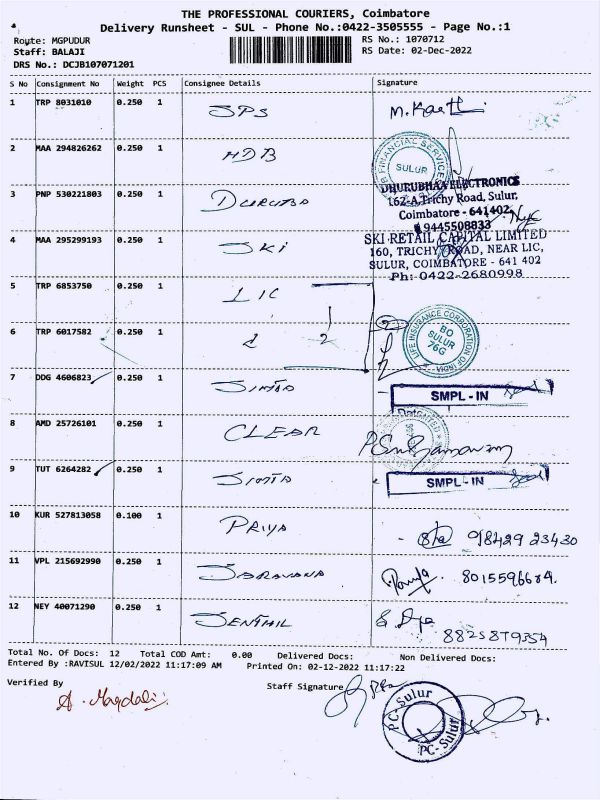 THE PROFESSIONAL COURIERS, Coimbatore
Delivery Runsheet - SUL - Phone No.:0422-3505555 - Page No.:1
Route: MGPUDUR
Staff: BALAJI
DRS No.: DCJB107071201
RS No.: 1070712
RS Date: 02-Dec-2022
S No Consignment No Weight PCS Consignee Details Signature
1 TRP 8031010 0.250 1 SPS M.Karthi
2 MAA 294826262 0.250 1 HDB
FINANCIAL SERVICES
SULUR
3 PNP 530221803 0.250 1
DHURUBHAA ELECTRONICS
162-A,Trichy Road, Sulur,
Coimbatore - 641402
9445508833
4 MAA 295299193 0.250 1 SKI
SKI RETAIL CAPITAL LIMITED
160, TRICHY ROAD, NEAR LIC,
SULUR, COIMBATORE - 641 402
Ph: 0422-2680998
5 TRP 6853750 0.250 1 LIC
6 TRP 6017582 0.250 1 2
LIFE INSURANCE CORPORATION OF INDIA
BO
SULUR
76G
7 DDG 4606823 0.250 1
SMPL - IN
8 AMD 25726101 0.250 1 CLEAR
9 TUT 6264282 0.250 1
SMPL - IN
10 KUR 527813058 0.100 1 PRIYA 98429 23430
11 VPL 215692990 0.250 1 SARAVANA
12 NEY 40071290 0.250 1 SENTHIL
Total No. Of Docs: 12 Total COD Amt: 0.00 Delivered Docs: Non Delivered Docs:
Entered By :RAVISUL 12/02/2022 11:17:09 AM Printed On: 02-12-2022 11:17:22
Verified By Staff Signature
PC-Sulur
PC-Sulur